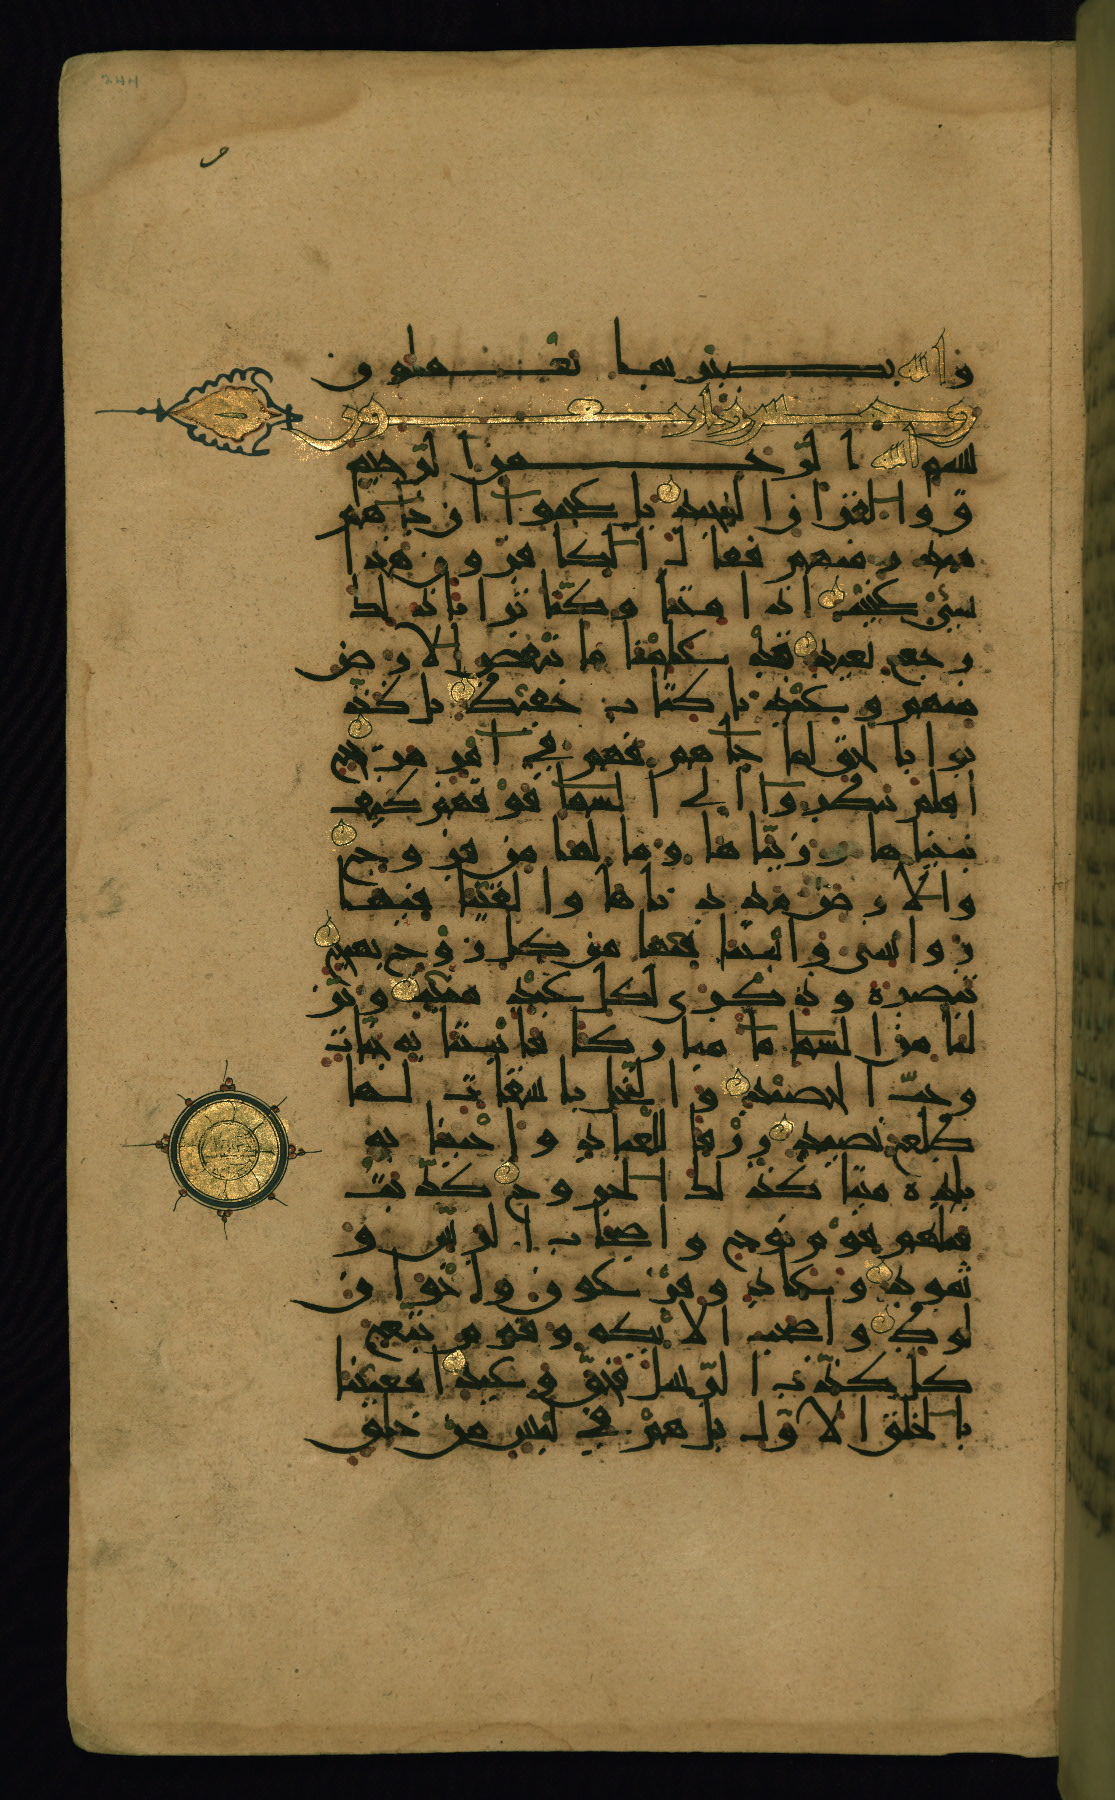 244
والله بصير بما تعملون
خمس واربعون
بسم الله الرحمن الرحيم
ق والقران المجيد بل عجبوا ان جاهم
منذر منهم فقال الكافرون هذا
شيء عجيب اذا متنا وكنا ترابا ذلك
رجع بعيد قد علمنا ما تنقص الارض
منهم وعندنا كتاب حفيظ بل كذ
بوا بالحق لما جاهم فهم في امر مريج
افلم ينظروا الى السما فوقهم كيف
بنيناها وزيناها وما لها من فروج
والارض مددناها والقينا فيها
رواسي وانبتنا فيها من كل زوج بهيج
تبصرة وذكرى لكل عبد منيب ونز
لنا من السما ما مباركا فانبتنا به جنات
وحب الحصيد والنخل باسقات لها
طلع نضيد رزقا للعباد واحيينا به
بلدة ميتا كذلك الخروج كذبت
قبلهم قوم نوح واصحاب الرس و
ثمود وعاد وفرعون واخوان
لوط واصحب الايكة وقوم تبع
كل كذب الرسل فحق وعيد افعيينا
بالخلق الاول بل هم في لبس من خلق